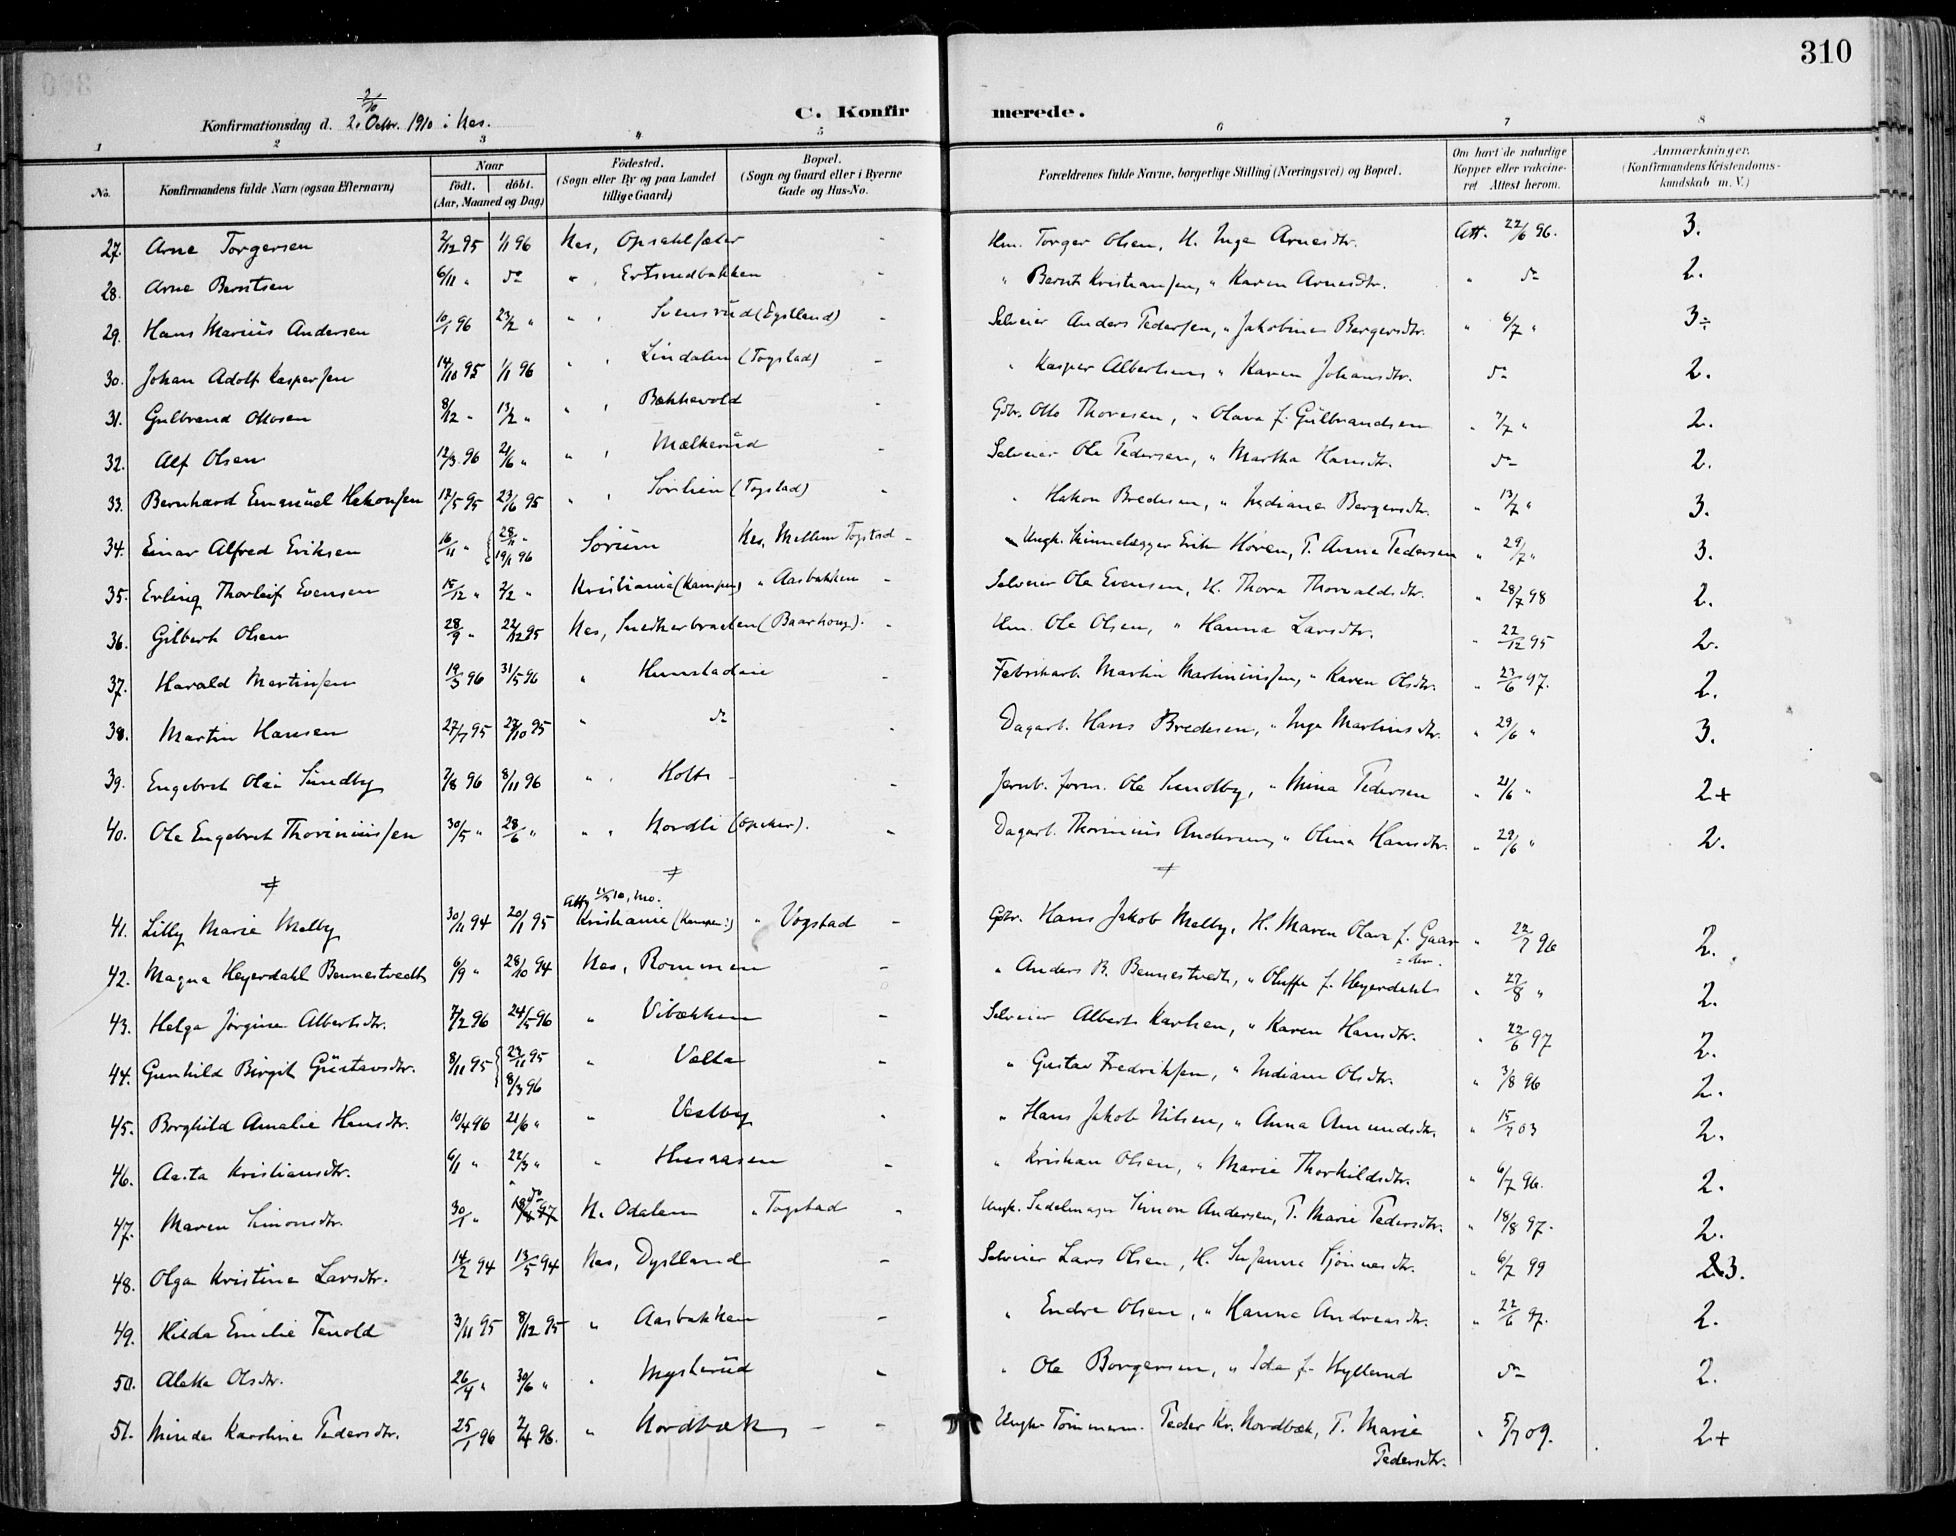 310
2/10
Konfirmationsdag d. 2. Octbr. 1910 i Nes. C. Konfirmerede.
1 2 3 " 5 6 7 8
No. Konfirmandens fulde Navn (ogsaa Efternavn) Naar födt. döbt. (Aar, Maaned og Dag) Födested. (Sogn eller By og paa Landet tillige Gaard) Bopæl. (Sogn og Gaard eller i Byerne Gade og Hus-No. Forældrenes fulde Navne, borgerlige Stilling (Næringsvei) og Bopæl. Om havt de naturlige Kopper eller vakcineret. Attest herom. Anmærkninger. (Konfirmandens Kristendomskundskab m. V.)
27. Arne Torgersen 2/12 95 1/1 96 Nes, Opsahlsæter - Hm. Torger Olsen, H. Inga Arnesdtr. Att. 22/6 96. 3.
28. Arne Berntsen 6/11 " do " , Ertsmedbakken - " Bernt Kristiansen, " Karen Arnesdtr. " do 2.
29. Hans Marius Andersen 10/1 96 23/2 " " , Svensrud (Dyslland) - Selveier Anders Pedersen, " Jakobine Bergersdtr. " 6/7 " 3÷
30. Johan Adolf Kaspersen 14/10 95 1/1 96 " , Lindalen (Togstad) - " Kasper Albertsen, " Karen Johansdtr. do 2.
31. Gulbrand Ottosen 8/12 " 13/2 " " , Bækkevold - Gbr. Otto Thoresen, " Olava f. Gulbrandsen " 7/7 " 2.
32. Alf Olsen 12/3 96 21/6 " " , Mælkerud - Selveier Ole Pedersen, " Martha Hansdtr. do 2.
33. Bernhard Emanuel Hakonsen 12/5 95 23/6 95 " , Sørlien (Togstad) - " Hakon Bredesen, " Indiane Bergersdtr. " 13/7 " 3.
34. Einar Alfred Eriksen 16/11 " { 28/11 " 19/1 96 Sørum Nes, Mellem Togstad - Ungk. Erik Høren, P. Anna Pedersen " 29/7 " 3.
35. Erling Thorleif Evensen 15/12 " 2/2 " Kristiania (Kampen) " Aasbakken - Selveier Ole Evensen, H. Thora Thorvaldsdtr. " 28/7 98 2.
36. Gilbert Olsen 28/9 " 22/12 95 Nes, Snedkerbraaten (Baarhoug). - Hm. Ole Olsen, " Hanna Larsdtr. " 22/12 95 2.
37. Harald Martinsen 19/3 96 31/5 96 " Hunstadeie - Fabrikarb. Martin Martiniussen, " Karen Olsdtr. " 23/6 97. 2.
38. Martin Hansen 27/7 95 27/10 95 " do - Dagarb. Hans Bredesen, " Inga Martinsdtr. " 29/6 " 3.
39. Engebret Olai Sundby 7/8 96 8/11 96 " , Holts - - Jernb. form. Ole Sundby, " Mina Pedersen " 21/6 " 2+
40. Ole Engebret Thoriniussen 30/5 " 28/6 " " , Nordli (Opaker). - Dagarb. Thorinius Andersen, " Olina Hansdtr. " 29/6 " 2.
41. Lilly Marie Melby 30/11 94 20/1 95 Kristiania (Kampen) " Vogstad - Gbr. Hans Jakob Melby, H. Maren Olava f. Gaarder. " 22/7 96 2.
42. Magna Heyerdahl Bennestvedt 6/9 " 28/10 94 Nes, Rommen - " Anders B. Bennestvedt, " Oluffa f. Heyerdahl " 27/8 " 2.
43. Helga Jørgine Albertsdtr. 7/2 96 24/5 96 " Vibækken - Selveier Albert Karlsen, " Karen Hansdtr. " 22/6 97 2.
44. Gunhild Birgit Gustavsdtr. 8/11 95 { 23/11 95 8/3 96 " Velta - " Gustav Fredriksen, " Indiane Olsdtr. " 3/8 96 2.
45. Borghild Amalie Hansdtr. 10/4 96 21/6 " " Vestby - " Hans Jakob Nilsen, " Anna Amundsdtr. " 15/7 03 2.
46. Aasta Kristiansdtr. 6/1 " 22/3 " " Husaasen - " Kristian Olsen, " Marie Thorkildsdtr. " 6/7 96. 2.
47. Maren Simonsdtr. 30/1 " do N. Odalen " Togstad - Ungk. Sadelmager Simon Andersen, P. Marie Pedersdtr. " 18/8 97. 2.
48. Olga Kristine Larsdtr. 14/2 94 13/5 94 Nes, Dyslland - Selveier Lars Olsen, H. Susanna Gjønnesdtr. " 6/7 99 3.
49. Hilda Emilie Tenold 3/11 95 8/12 95 " Aasbakken - " Endre Olsen, " Hanna Andreasdtr. " 22/6 97. 2.
50. Aletta Olsdtr. 26/4 " 30/6 " " Mysterud - " Ole Borgersen, " Ida f. Hylland do 2.
51. Minda Karoline Pedersdtr. 25/1 96 2/4 96. " Nordbæk - - Ungk. Tømmerm. Peder Kr. Nordbæk, P. Marie Pedersdtr. " 5/7 09. 2+